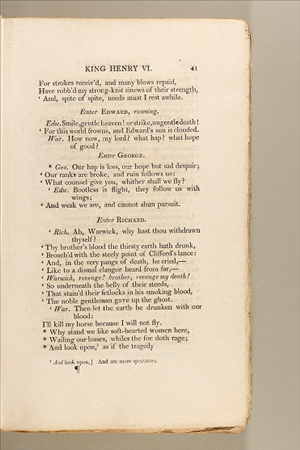 KING HENRY VI. 41
For strokes receiv'd, and many blows repaid,
Have robb'd my strong-knit sinews of their strength,
‘ And, spite of spite, needs must I rest awhile.
Enter EDWARD, running.
Edw. Smile, gentle heaven! or strike, ungentle death!
‘ For this world frowns, and Edward's sun is clouded.
War. How now, my lord? what hap? what hope
of good?
Enter GEORGE.
* Geo. Our hap is loss, our hope but sad despair;
‘ Our ranks are broke, and ruin follows us:
‘ What counsel give you, whither shall we fly?
‘ Edw. Bootless is flight, they follow us with
wings;
‘ And weak we are, and cannot shun pursuit.
Enter RICHARD.
‘ Rich. Ah, Warwick, why hast thou withdrawn
thyself?
‘ Thy brother's blood the thirsty earth hath drunk,
‘ Broach'd with the steely point of Clifford's lance:
‘ And, in the very pangs of death, he cried,—
‘ Like to a dismal clangor heard from far,—
‘ Warwick, revenge! brother, revenge my death!
‘ So underneath the belly of their steeds,
‘ That stain'd their fetlocks in his smoking blood,
‘ The noble gentleman gave up the ghost.
‘ War. Then let the earth be drunken with our
blood:
I'll kill my horse because I will not fly.
* Why stand we like soft-hearted women here,
* Wailing our losses, whiles the foe doth rage;
* And look upon,¹ as if the tragedy
¹ And look upon,] And are mere spectators.
¶